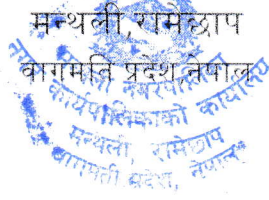 मन्थली,रामेछाप
वागमति प्रदेश,नेपाल
नगरपालिका
कार्यपालिकाको कार्यालय
मन्थली, रामेछाप
बागमती प्रदेश, नेपाल